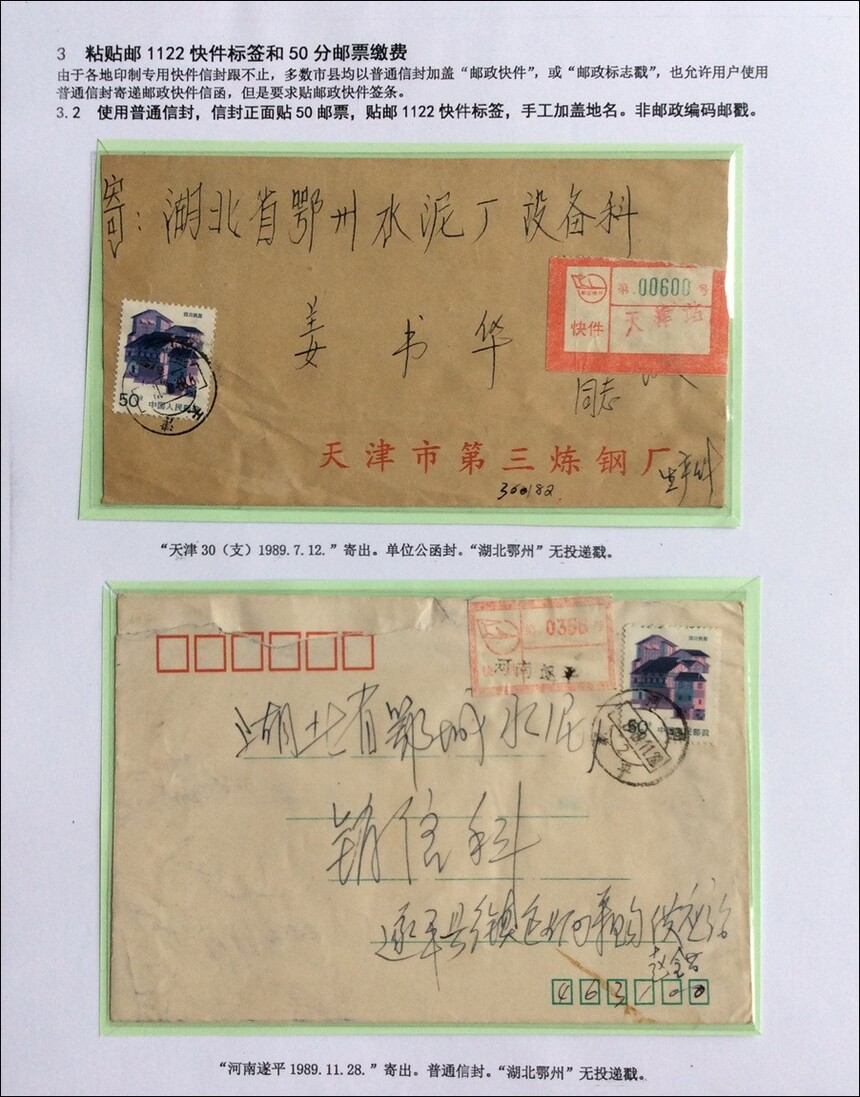 3 粘贴邮1122快件标签和50分邮票缴费
由于各地印制专用快件信封跟不止，多数市县均以普通信封加盖“邮政快件”，或“邮政标志戳”，也允许用户使用
普通信封寄递邮政快件信函，但是要求贴邮政快件签条。
3.2 使用普通信封，信封正面贴50邮票，贴邮1122快件标签，手工加盖地名。非邮政编码邮戳。
寄：湖北省鄂州水泥厂设备科
第 00600 号
快件
天津
姜书华
同志
50分 中国人民邮政
天津市第三炼钢厂
300182
“天津30（支）1989.7.12.”寄出。单位公函封。“湖北鄂州”无投递戳。
0356
河南遂平
湖北省鄂城水泥厂
50分 中国人民邮政
销信科
遂平县
463100
“河南遂平1989.11.28.”寄出。普通信封。“湖北鄂州”无投递戳。